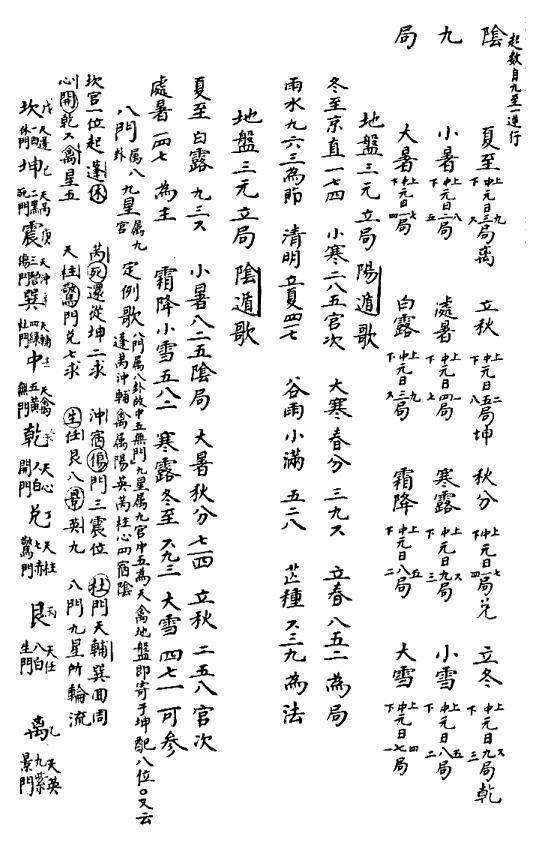 陰九局
起数自九至一逆行
夏至 上中下元日九三六局離 立秋 上中下元日二五八局坤 秋分 上中下元日七一四局兌 立冬 上中下元日六九三局乾
小暑 上中下元日八二五局 處暑 上中下元日一四七局 寒露 上中下元日六九三局 小雪 上中下元日五八二局
大暑 上中下元日七一四局 白露 上中下元日九三六局 霜降 上中下元日五八二局 大雪 上中下元日四七一局
地盤三元立局陽遁歌
冬至京直一七四 小寒二八五官次 大寒春分三九六 立春八五二為局
雨水九六三為節 清明立夏四一七 谷雨小滿五二八 芒種六三九為法
地盤三元立局陰遁歌
夏至白露九三六 小暑八二五陰局 大暑秋分七一四 立秋二五八官次
處暑一四七為主 霜降小雪五八二 寒露冬至六九三 大雪四七一可參
八門属八卦九星属九宮 定例歌 八門属八卦故中五無門九星属九宮中五為天禽地盤即寄于坤配八位○又云
蓬芮沖輔禽属陽英芮柱心四宿陰
坎宮一位起蓬休 芮死還從坤二求 沖宿傷門三震位 杜門天輔巽回周
心開乾六禽星五 天柱驚門兌七求 生任艮八景英九 八門九星所輪流
坎 戊天蓬一白休門 坤 己天芮二黑死門 震 庚天沖三碧傷門 巽 天輔四綠杜門 中 天禽五黃無門 乾 天心六白開門 兌 丁天柱七赤驚門 艮 丙天任八白生門 離 乙天英九紫景門